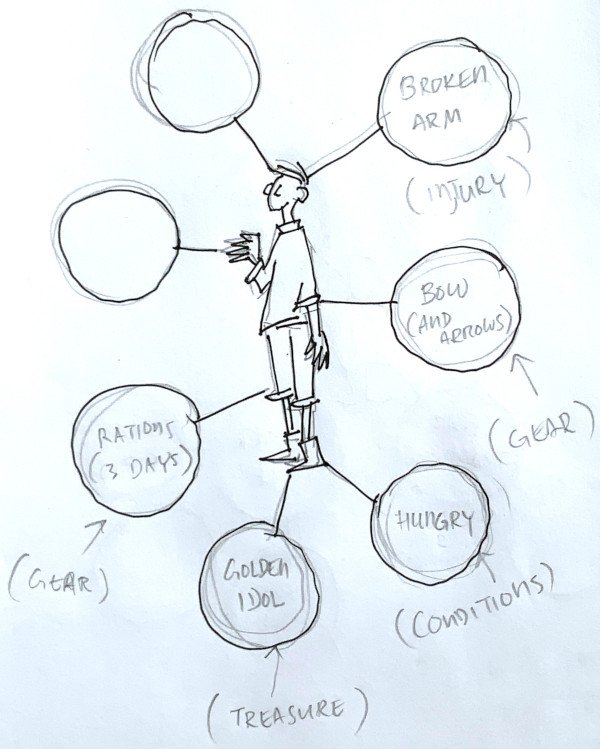 BROKEN
ARM
(INJURY)
BOW
(AND
ARROWS)
(GEAR)
RATIONS
(3 DAYS)
(GEAR)
HUNGRY
(CONDITIONS)
GOLDEN
IDOL
(TREASURE)